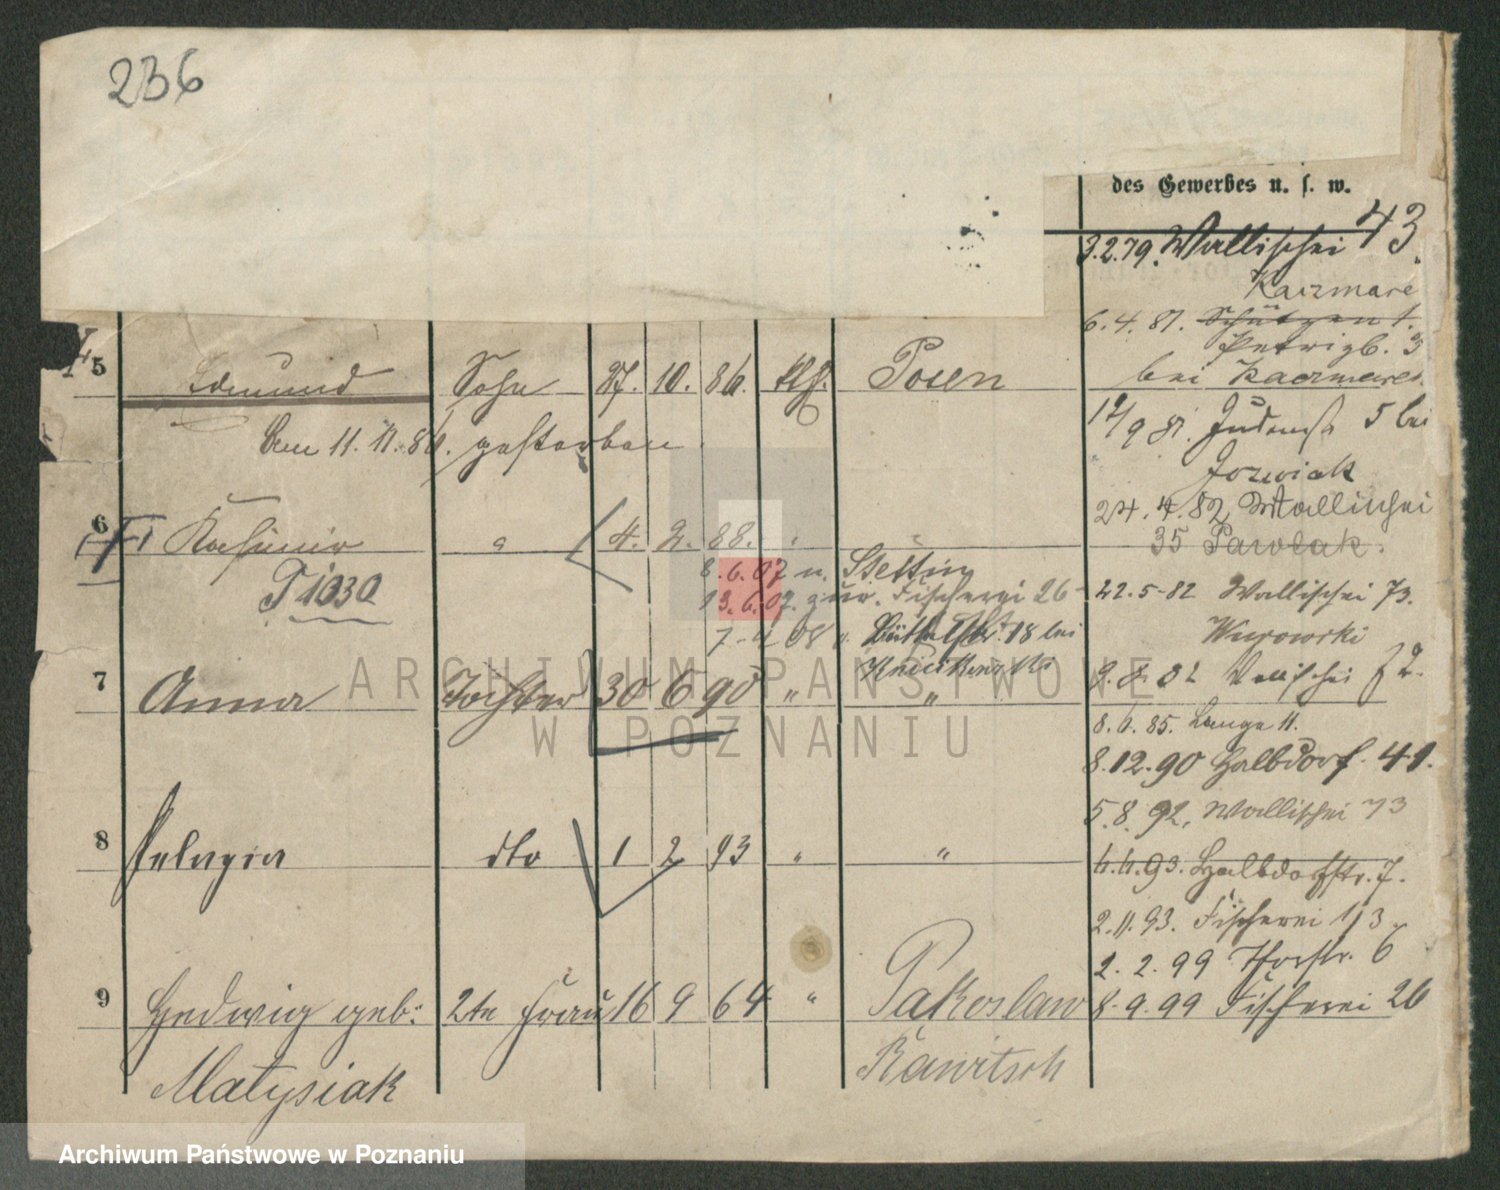 236
des Gewerbes u. s. w.
3.2.79. Wallischei 43.
Kaczmare
6.4.81. Schützen 1.
Petriplb. 3
bei Kaczmarek
5 Edmund Sohn 27. 10. 86. klf. Posen
den 11. 11. 86. gestorben
9 81. Judenst 5 bei
Jozwiak
24. 4. 82. Wallischei
35 Pawlak.
6 Kasimir " 4. 2. 88. " "
T 1030
8.6.07 n. Stettin
13.6.07. zur. Fischerei 26
7-4 08 18 bei
22.5-82 Wallischei 73.
9.8.82 Wallischei 72.
7 Anna Tochter 30 6 90 " "
8.6.85. Lange 11.
8.12.90 Halbdorf. 41.
5.8.92. Wallischei 73
8 Pelagia dto 1 2 93 " "
4.4.93. Halbdorfstr. 7.
2.11.93. Fischerei 13
2.2.99 Thorstr. 6
9 Hedwig geb: 2te Frau 16 9 64 " Pakoslaw
8.9.99 Fischerei 26
Matysiak Rawitsch
ARCHIWUM PAŃSTWOWE
W POZNANIU
Archiwum Państwowe w Poznaniu